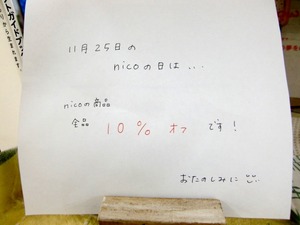 11月25日の
nicoの日は...
nicoの商品
全品 10% オフ です!
おたのしみに